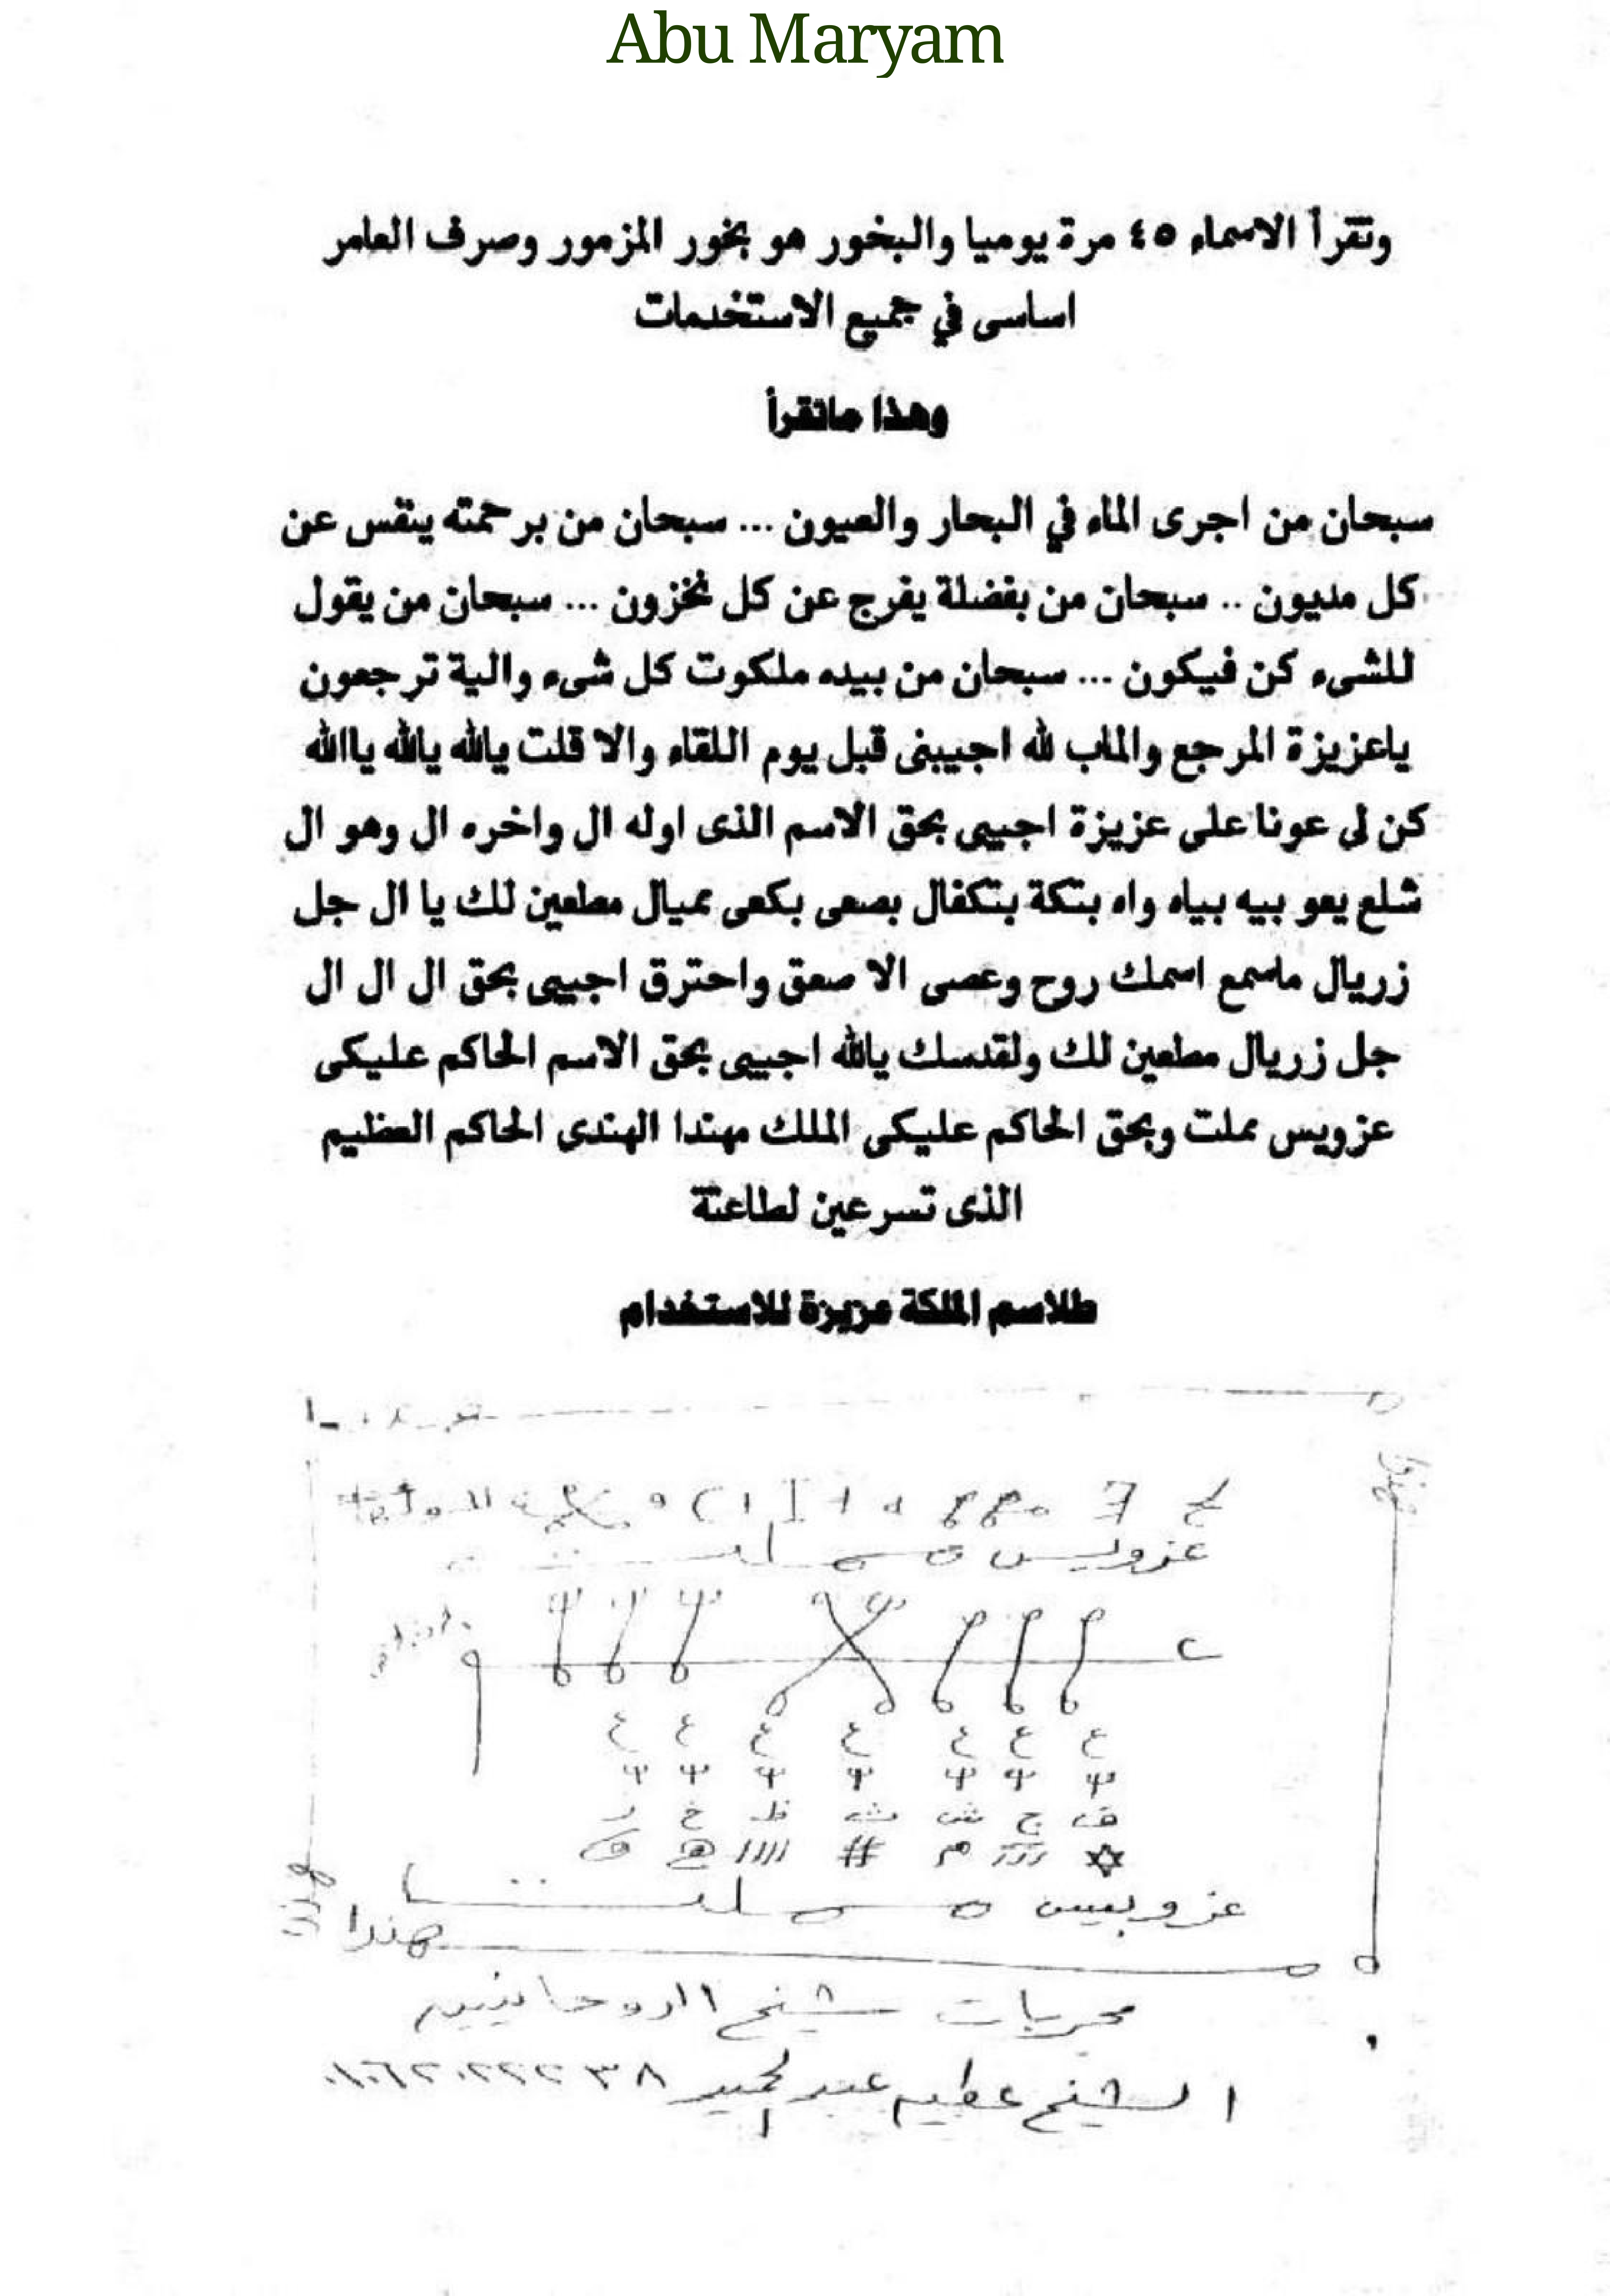 Abu Maryam
وتقرأ الاسماء ٤٥ مرة يوميا والبخور هو بخور المزمور وصرف العامر
اساسى في جميع الاستخدمات
وهذا ماتقرأ
سبحان من اجرى الماء في البحار والعيون ... سبحان من برحمته ينفس عن
كل مديون .. سبحان من بفضلة يفرج عن كل مخزون ... سبحان من يقول
للشىء كن فيكون ... سبحان من بيده ملكوت كل شىء والية ترجعون
ياعزيزة المرجع والماب لله اجيبنى قبل يوم اللقاء والا قلت يالله يالله ياالله
كن لى عونا على عزيزة اجيبى بحق الاسم الذى اوله ال واخره ال وهو ال
شلع يعو بيه بياه واه بتكة بتكفال بصعى بكعى مميال مطعين لك يا ال جل
زريال ماسمع اسمك روح وعصى الا صعق واحترق اجيبى بحق ال ال ال
جل زريال مطعين لك ولقدسك يالله اجيبى بحق الاسم الحاكم عليكى
عزويس مملت وبحق الحاكم عليكى الملك مهندا الهندى الحاكم العظيم
الذى تسرعين لطاعتة
طلاسم الملكة عزيزة للاستخدام
عزويس
ع ع ع ع ع ع ع
ف ج ش ث ظ خ ز
#
هندا
مجربات شيخ الروحانيين
الشيخ عطيه عبد الحميد